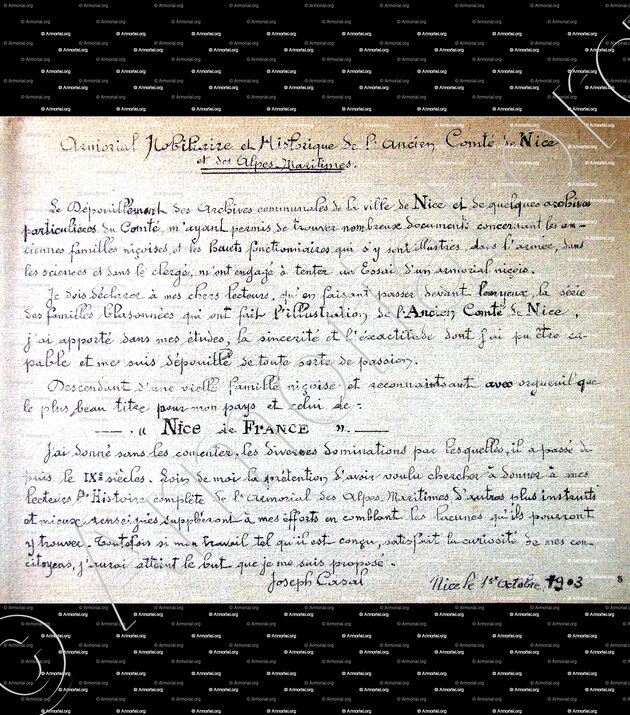 Armorial Nobiliaire et Historique de l'Ancien Comté de Nice
et des Alpes Maritimes.
Le Dépouillement des Archives communales de la ville de Nice et de quelques archives
particulières du Comté, m'ayant permis de trouver nombreux documents concernant les an-
ciennes familles niçoises, et les hauts fonctionnaires qui s'y sont illustrés dans l'armée, dans
les sciences et dans le clergé, m'ont engagé à tenter un Essai d'un armorial niçois.
Je dois déclarer à mes chers lecteurs, qu'en faisant passer devant leurs yeux, la série
des familles blasonnées qui ont fait l'illustration de l'Ancien Comté de Nice,
j'ai apporté dans mes études, la sincérité et l'éxactitude dont j'ai pu être ca-
pable et me suis dépouillé de toute sorte de passion.
Descendant d'une vielle famille niçoise et reconnaissant avec orgueuil que
le plus beau titre pour mon pays et celui de :
— " Nice de FRANCE ". —
J'ai donné sans les comenter, les diverses dominations par lesquelles, il a passé de
puis le IXe siècles. Loin de moi la prétention d'avoir voulu chercher à donner à mes
lecteurs l'Histoire complète de l'armorial des Alpes Maritimes, d'autres plus instruits
et mieux renseignés suppléront à mes efforts en comblant les lacunes qu'ils pourront
y trouver. Toutefois si mon travail tel qu'il est conçu, satisfait la curiosité de mes con-
citoyens, j'aurai atteint le but que je me suis proposé.
Joseph Casal
Nice le 1er octobre, 1903
© Armorial.org